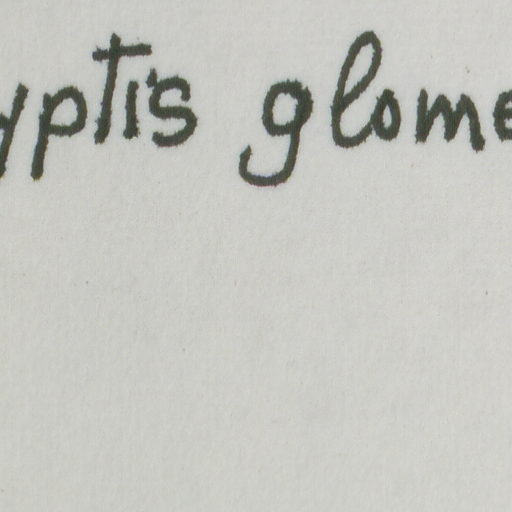 yptis glome